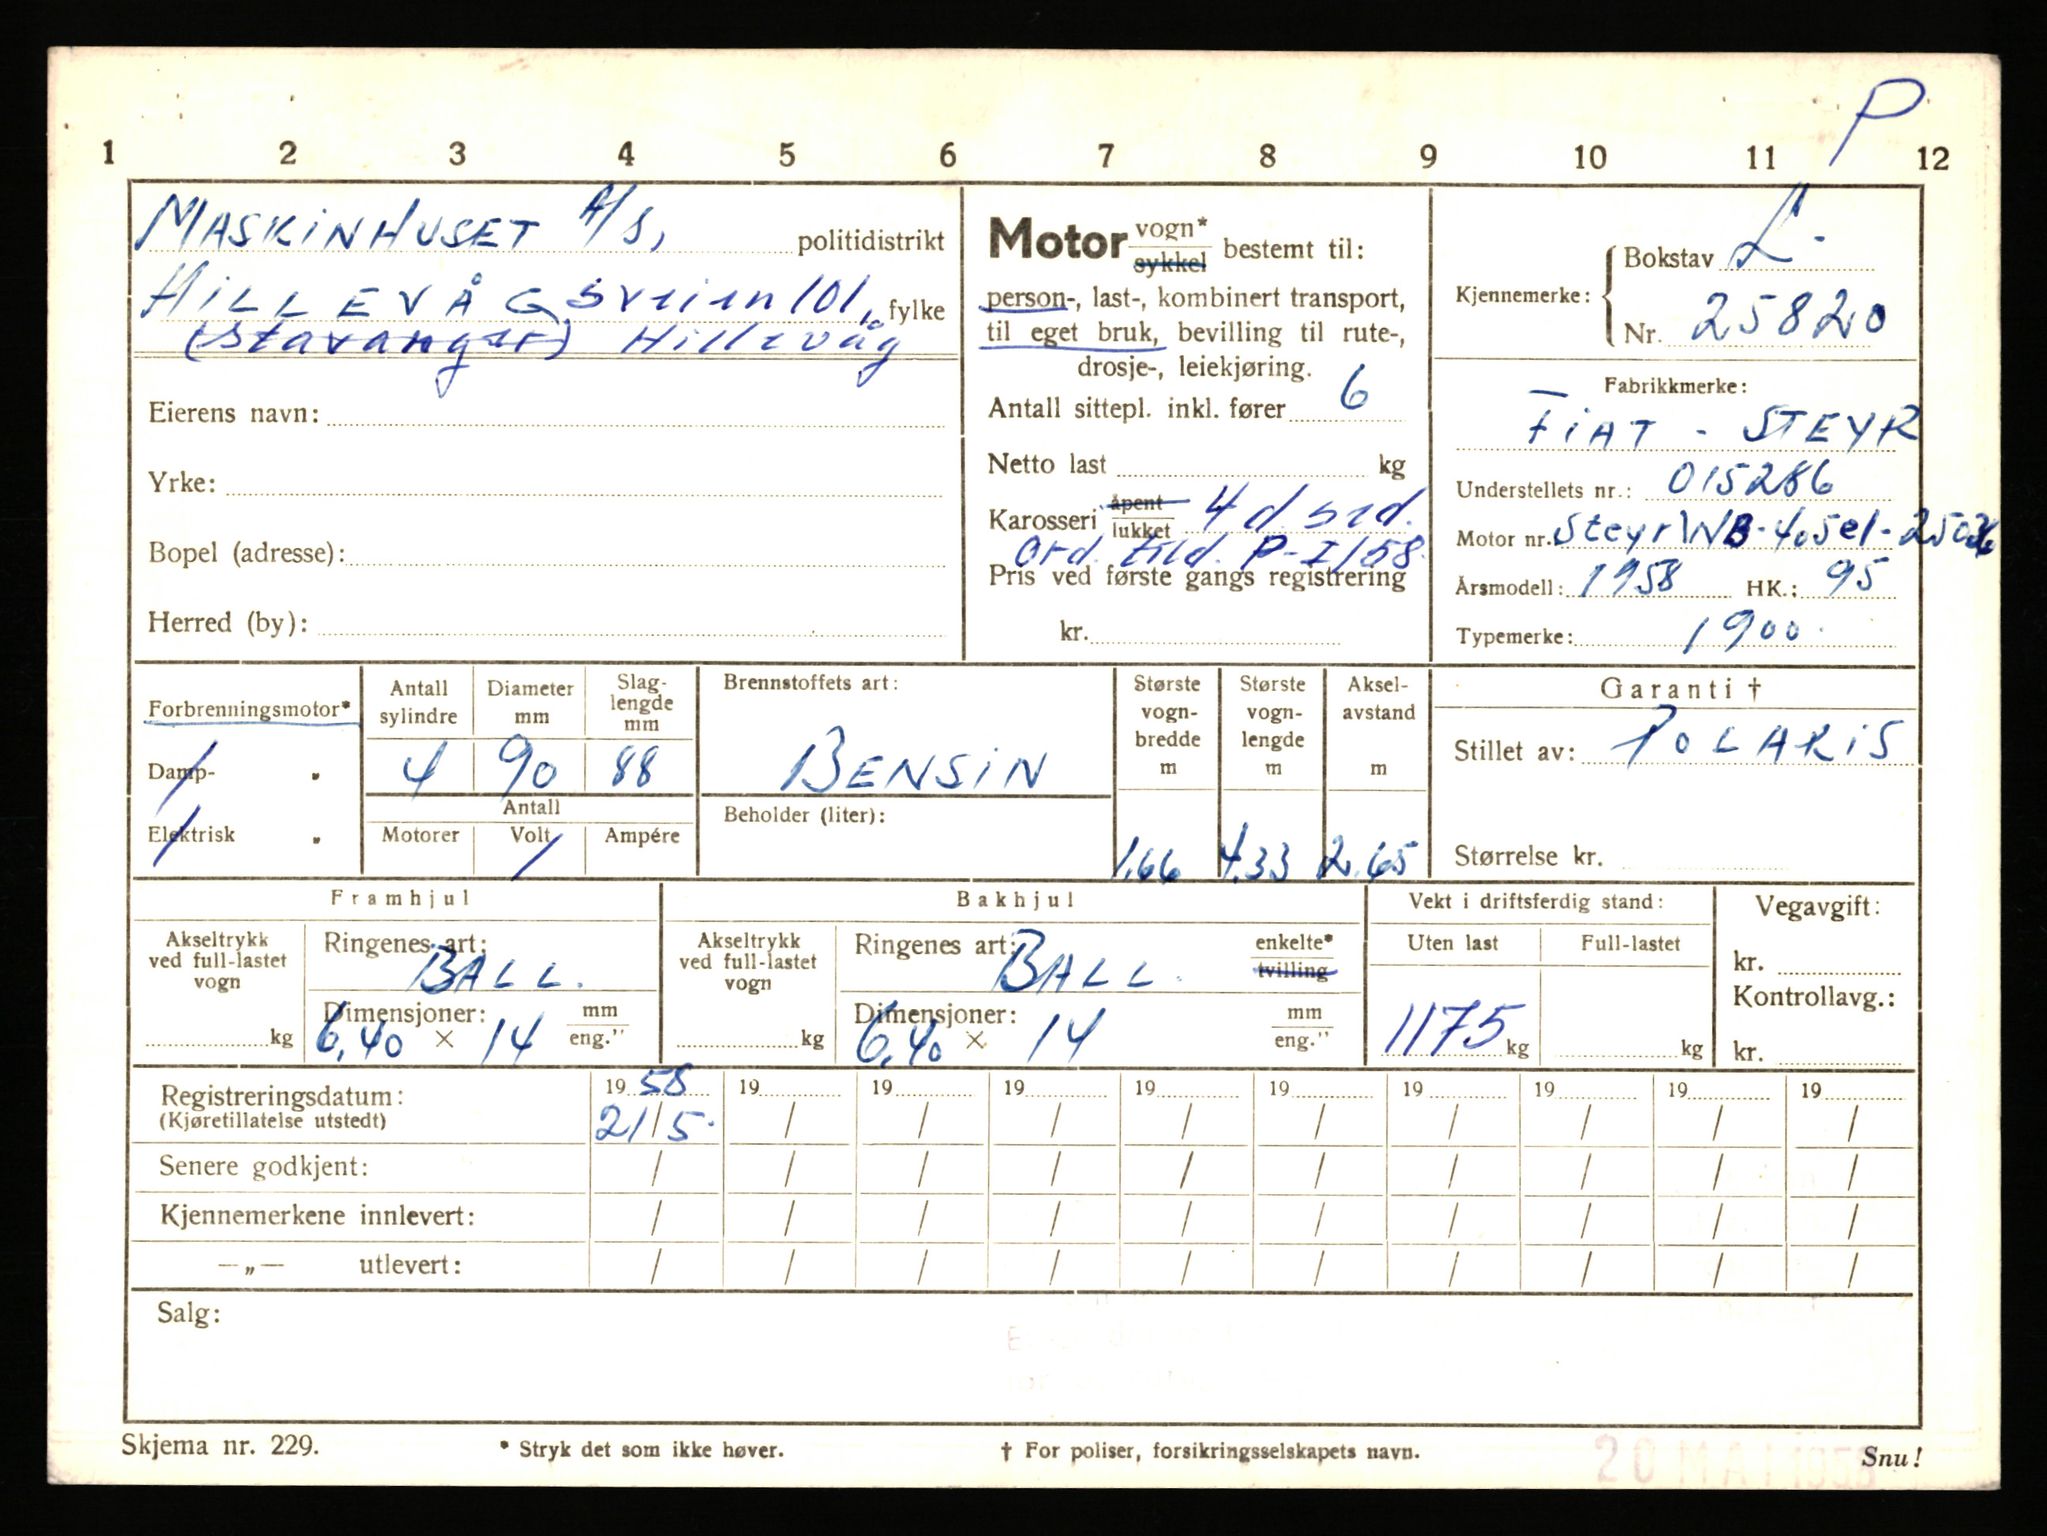 P
1 2 3 4 5 6 7 8 9 10 11 12
MASKINHUSET A/S, politidistrikt
HILLEVÅGSveien 101, fylke
(Stavanger) Hillevåg
Eierens navn:
Yrke:
Bopel (adresse):
Herred (by):
Motor vogn* sykkel bestemt til:
person-, last-, kombinert transport,
til eget bruk, bevilling til rute-,
drosje-, leiekjøring.
Antall sittepl. inkl. fører 6
Netto last kg
Karosseri åpent lukket 4 d. sed.
Ord. tild. P-I/58.
Pris ved første gangs registrering
kr.
Kjennemerke: Bokstav L-
Nr. 25820
Fabrikkmerke:
FIAT - STEYR
Understellets nr.: 015286
Motor nr. Steyr WB-405el-
Årsmodell: 1958 HK.: 95
Typemerke: 1900.
Forbrenningsmotor*
Damp- "
Elektrisk "
Antall sylindre 4
Diameter mm 90
Slag-
lengde
mm 88
Antall
Motorer Volt Ampére
Brennstoffets art:
BENSIN
Beholder (liter):
Største
vogn-
bredde
m
1.66
Største
vogn-
lengde
m
4.33
Aksel-
avstand
m
2.65
Garanti †
Stillet av: POLARIS
Størrelse kr.
Framhjul
Akseltrykk
ved full-lastet
vogn
kg
Ringenes art:
BALL.
Dimensjoner: mm
6,40 × 14 eng."
Bakhjul
Akseltrykk
ved full-lastet
vogn
kg
Ringenes art: enkelte*
BALL. tvilling
Dimensjoner: mm
6,40 × 14 eng."
Vekt i driftsferdig stand:
Uten last Full-lastet
1175 kg kg
Vegavgift:
kr.
Kontrollavg.:
kr.
Registreringsdatum: 19 58 19 19 19 19 19 19 19 19 19
(Kjøretillatelse utstedt) 21/5. / / / / / / / / /
Senere godkjent: / / / / / / / / / /
Kjennemerkene innlevert: / / / / / / / / / /
—„— utlevert: / / / / / / / / / /
Salg:
Skjema nr. 229. * Stryk det som ikke høver. † For poliser, forsikringsselskapets navn. Snu!
20 MAI 1958